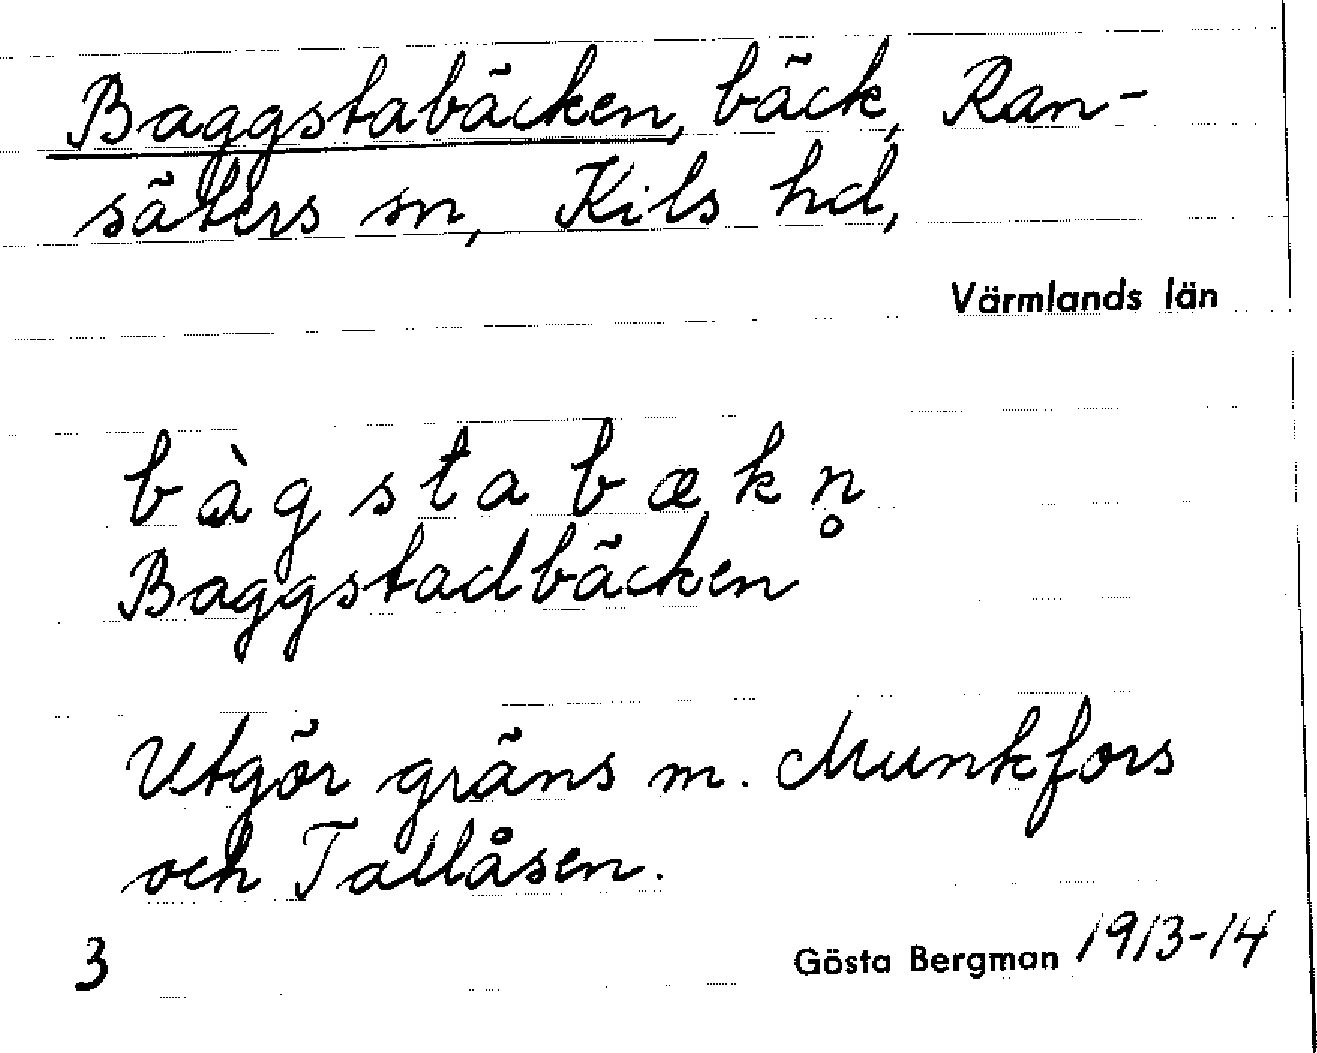 Baggstabäcken, bäck, Ran-
säters sn, Kils hd,
Värmlands län
bàgstabækn̥
Baggstadbäcken
Utgör gräns m. Munkfors
och Tallåsen.
3 Gösta Bergman 1913-14